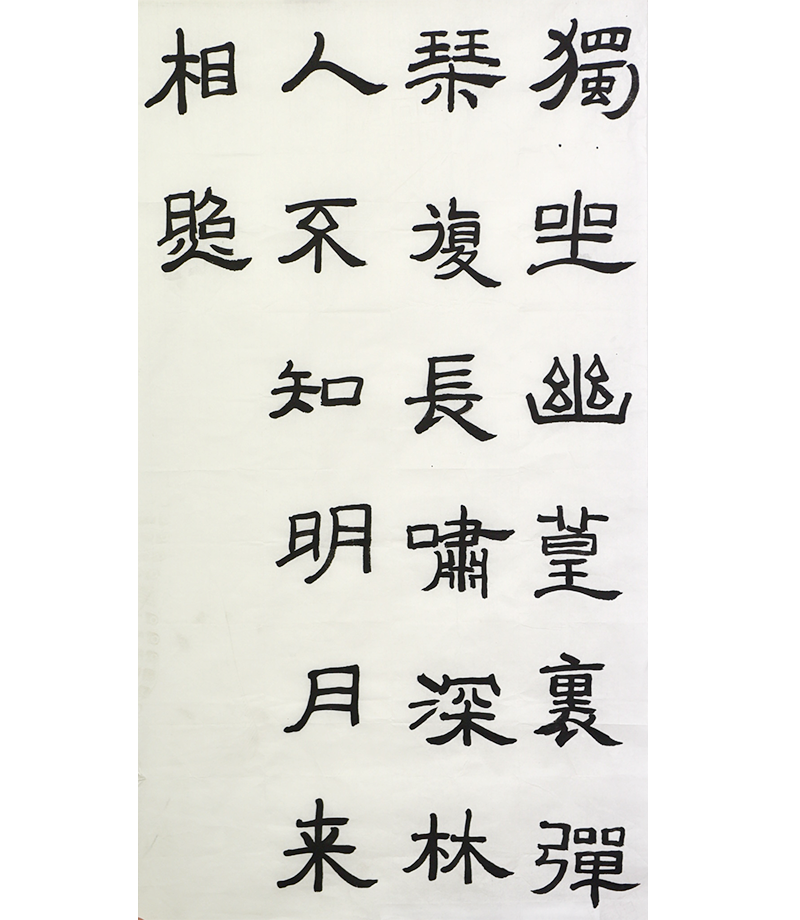 獨坐幽篁裏彈
琹復長嘯深林
人不知明月来
相照